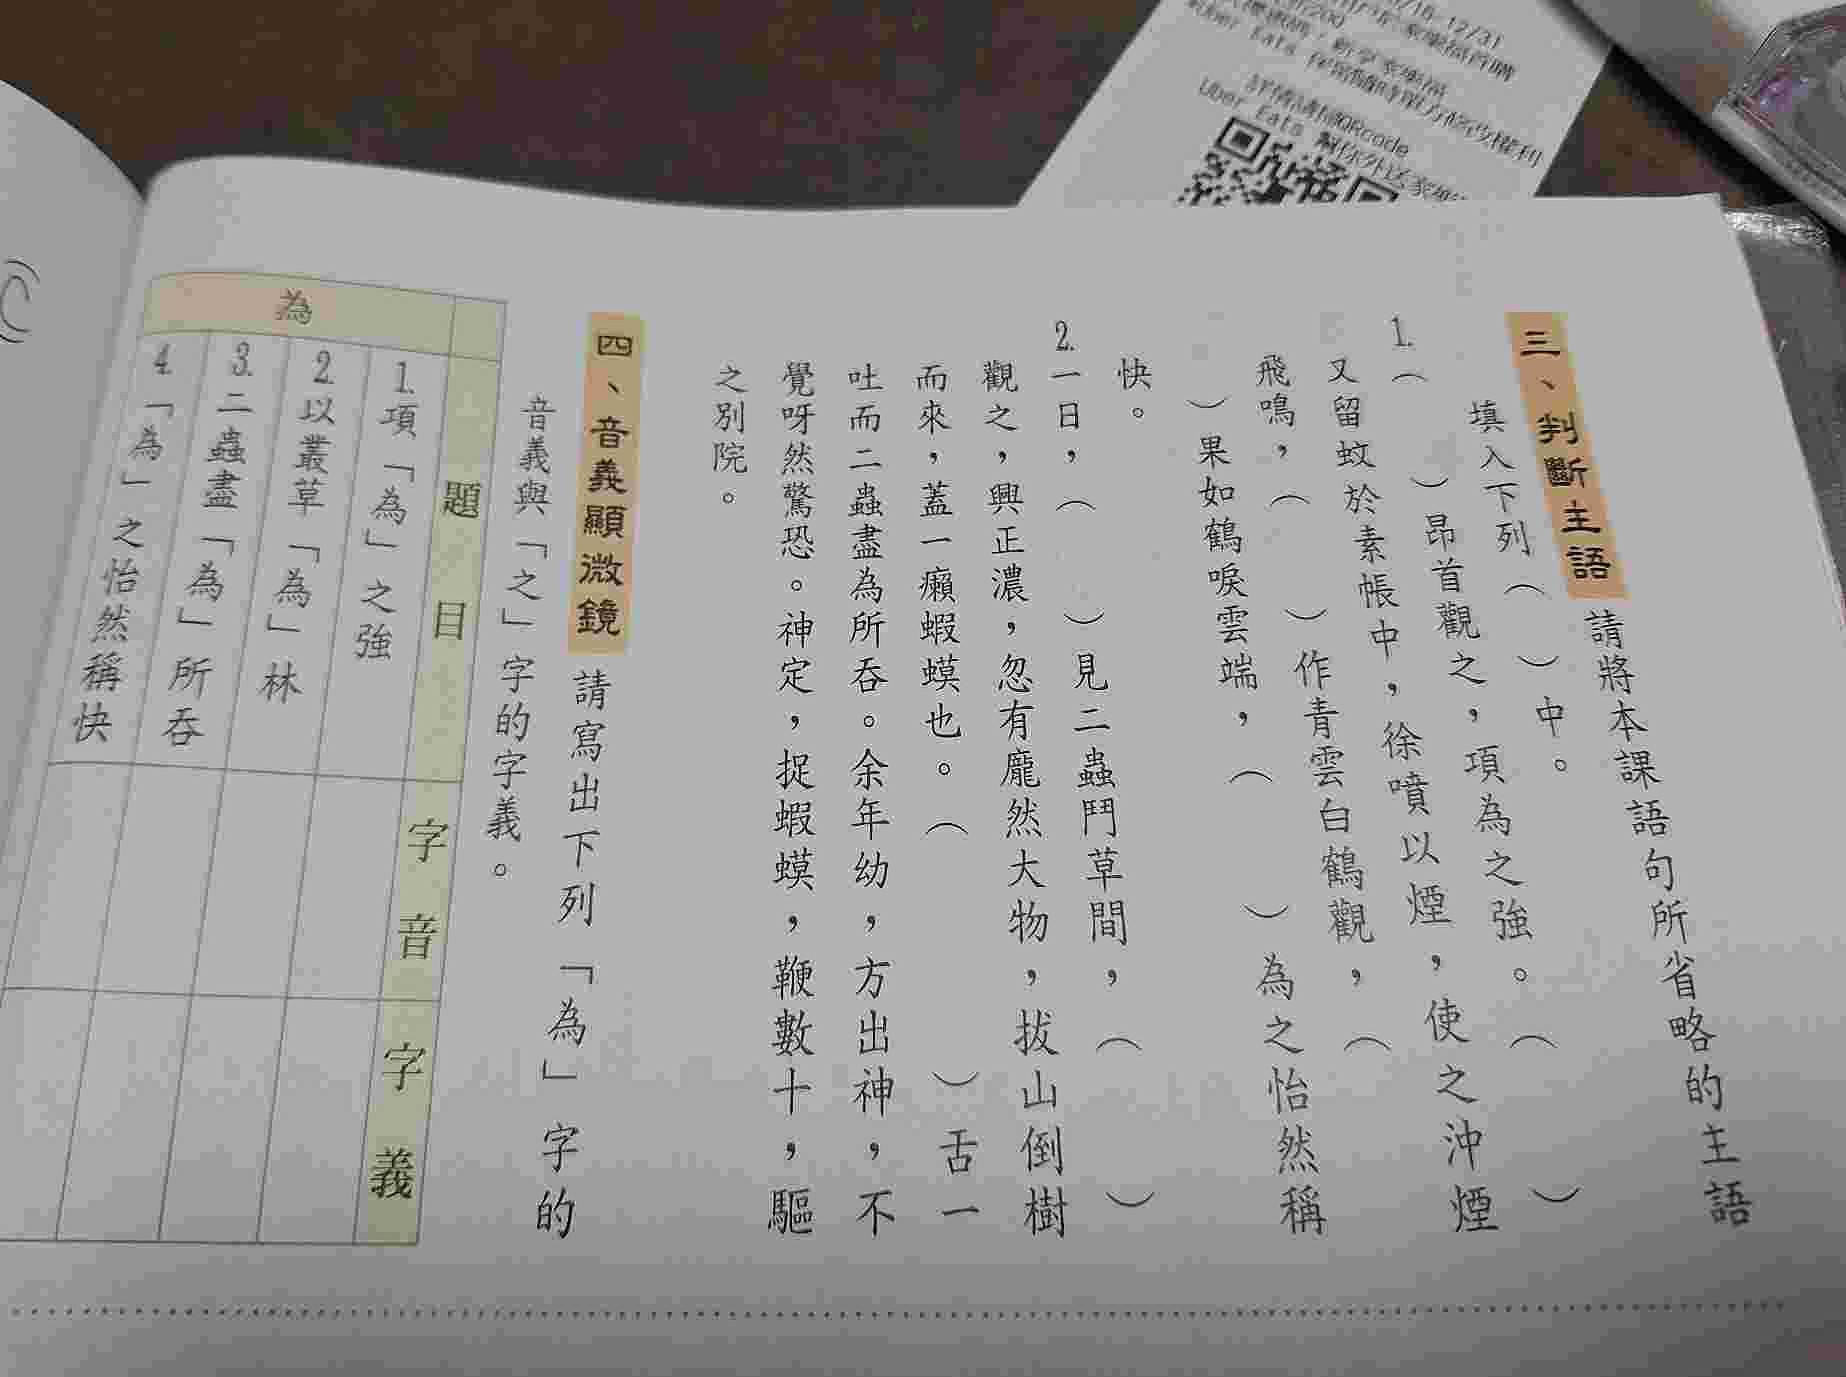 三、判斷主語　請將本課語句所省略的主語
填入下列（　）中。
1.（　）昂首觀之，項為之強。（　）
又留蚊於素帳中，徐噴以煙，使之沖煙
飛鳴，（　）作青雲白鶴觀，（
）果如鶴唳雲端，（　）為之怡然稱
快。
2.一日，（　）見二蟲鬥草間，（　）
觀之，興正濃，忽有龐然大物，拔山倒樹
而來，蓋一癩蝦蟆也。（　）舌一
吐而二蟲盡為所吞。余年幼，方出神，不
覺呀然驚恐。神定，捉蝦蟆，鞭數十，驅
之別院。
四、音義顯微鏡　請寫出下列「為」字的
音義與「之」字的字義。
題目　字音　字義
為
1.項「為」之強
2.以叢草「為」林
3.二蟲盡「為」所吞
4.「為」之怡然稱快
12/31
Uber Eats
詳情請掃QRcode
Uber Eats